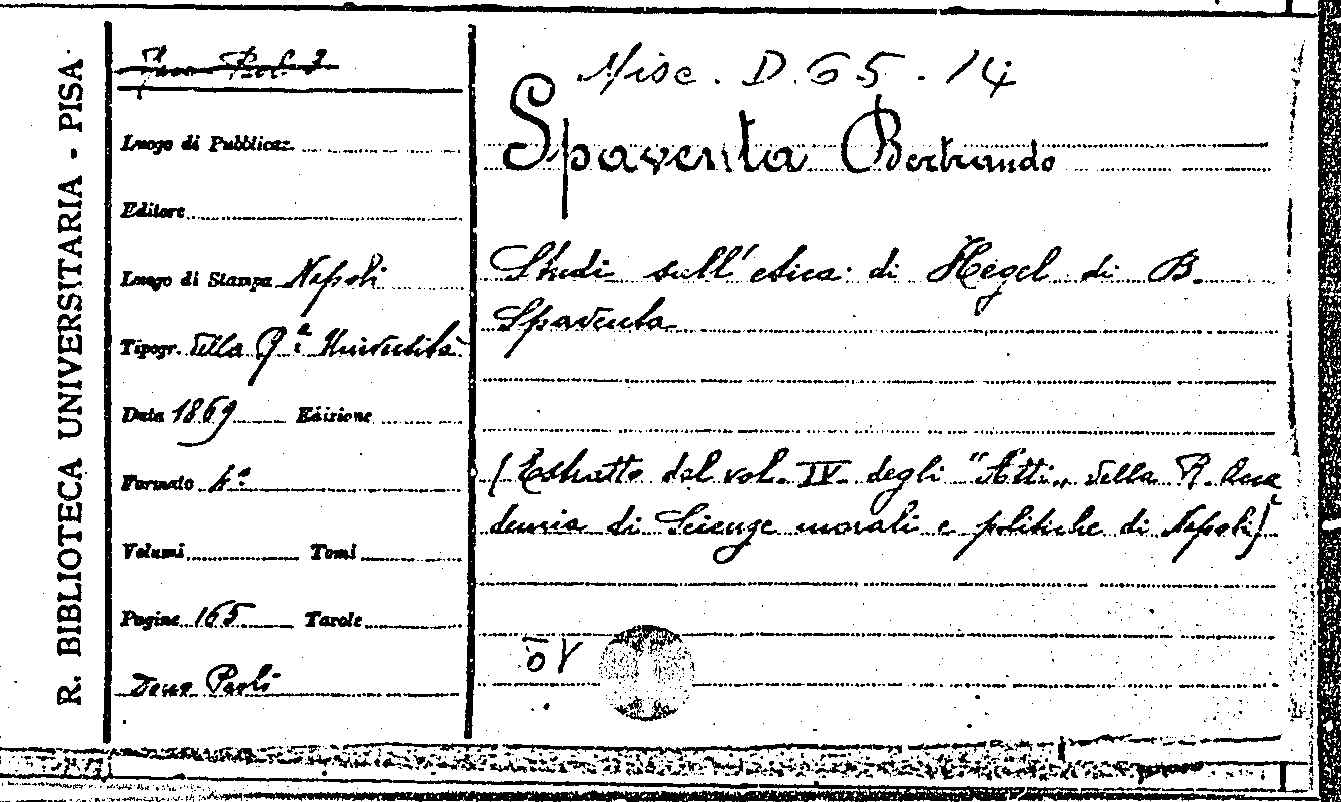 R. BIBLIOTECA UNIVERSITARIA - PISA
Misc. D. 65. 14
Spaventa Bertrando
Luogo di Pubblicaz.
Editore
Luogo di Stampa Napoli
Tipogr. della R.a Università
Data 1869 Edizione
Formato 4°
Volumi Tomi
Pagine 165 Tavole
Dono Paoli
Studi sull'etica di Hegel di B.
Spaventa
(Estratto dal vol. IV degli "Atti" della R. Acca
demia di Scienze morali e politiche di Napoli)